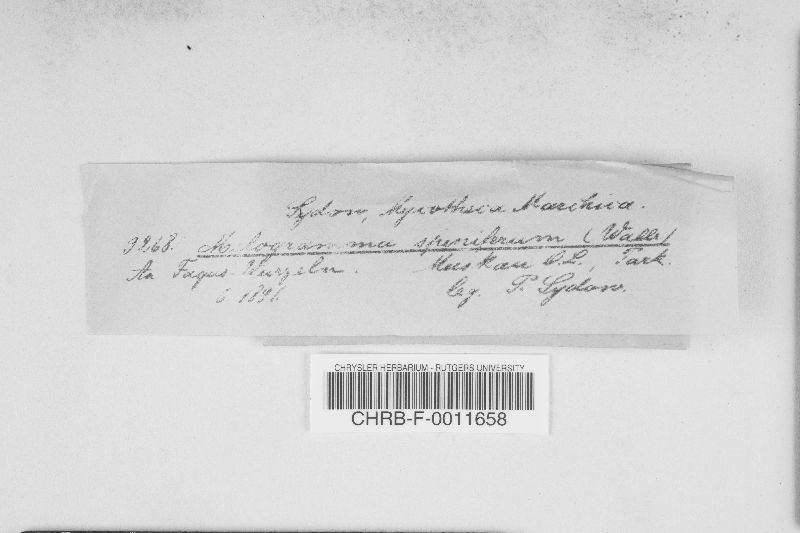 Sydow, Mycotheca Marchica.
3268. Melogramma spiniferum (Wallr.)
An Fagus-Wurzeln. Muskau O.L., Park.
6 189 leg. P. Sydow.
CHRYSLER HERBARIUM - RUTGERS UNIVERSITY
CHRB-F-0011658